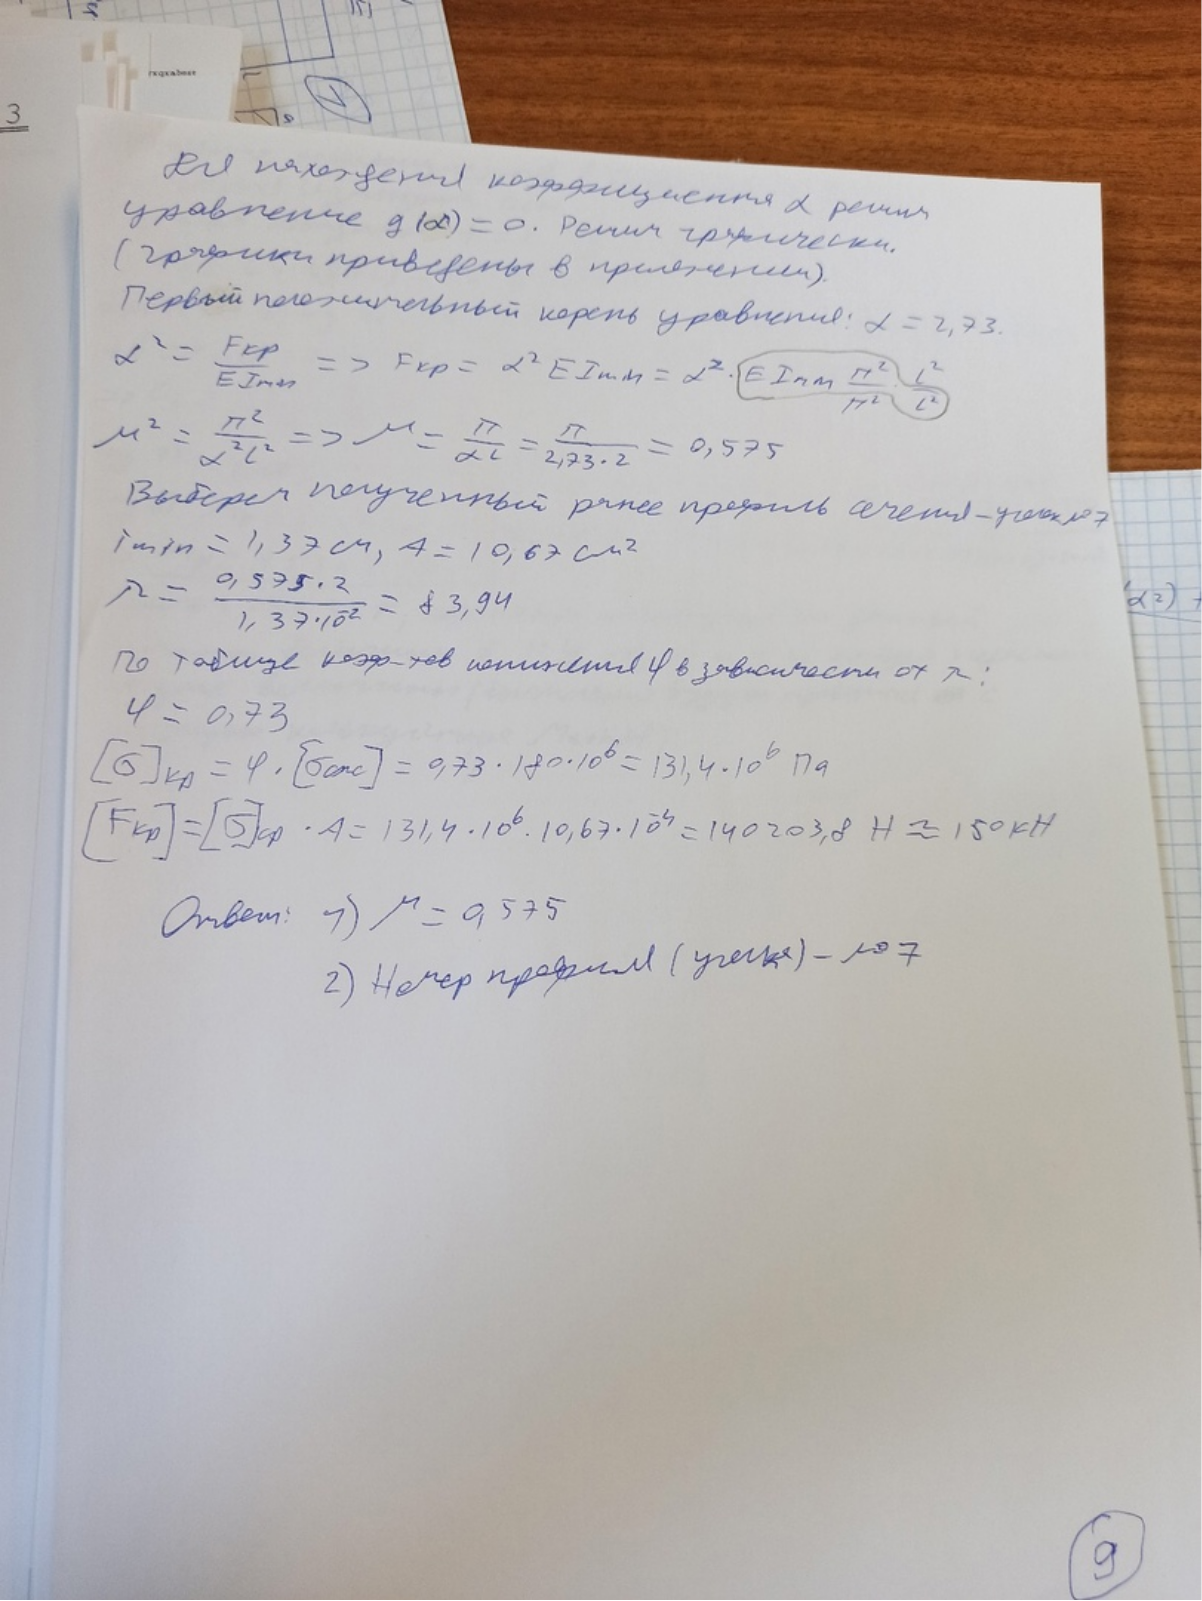 3
Для нахождения коэффициента α решим
уравнение g(α) = 0. Решим графически.
(Графики приведены в приложении).
Первый положительный корень уравнения: α = 2,73.
α² = Fкр / EImin => Fкр = α² EImin = α² · EImin π²/π² · l²/l²
μ² = π²/α²l² => μ = π/αl = π/2,73·2 = 0,575
Выберем полученный ранее профиль сечения – уголок №7
imin = 1,37 см, A = 10,67 см²
λ = 0,575·2 / 1,37·10⁻² = 83,94
По таблице коэф-тов понижения φ в зависимости от λ:
φ = 0,73
[σ]кр = φ · [σсж] = 0,73 · 180·10⁶ = 131,4·10⁶ Па
[Fкр] = [σ]кр · A = 131,4·10⁶ · 10,67·10⁻⁴ = 140203,8 Н ≈ 150кН
Ответ: 1) μ = 0,575
2) Номер профиля (уголка) – №7
9